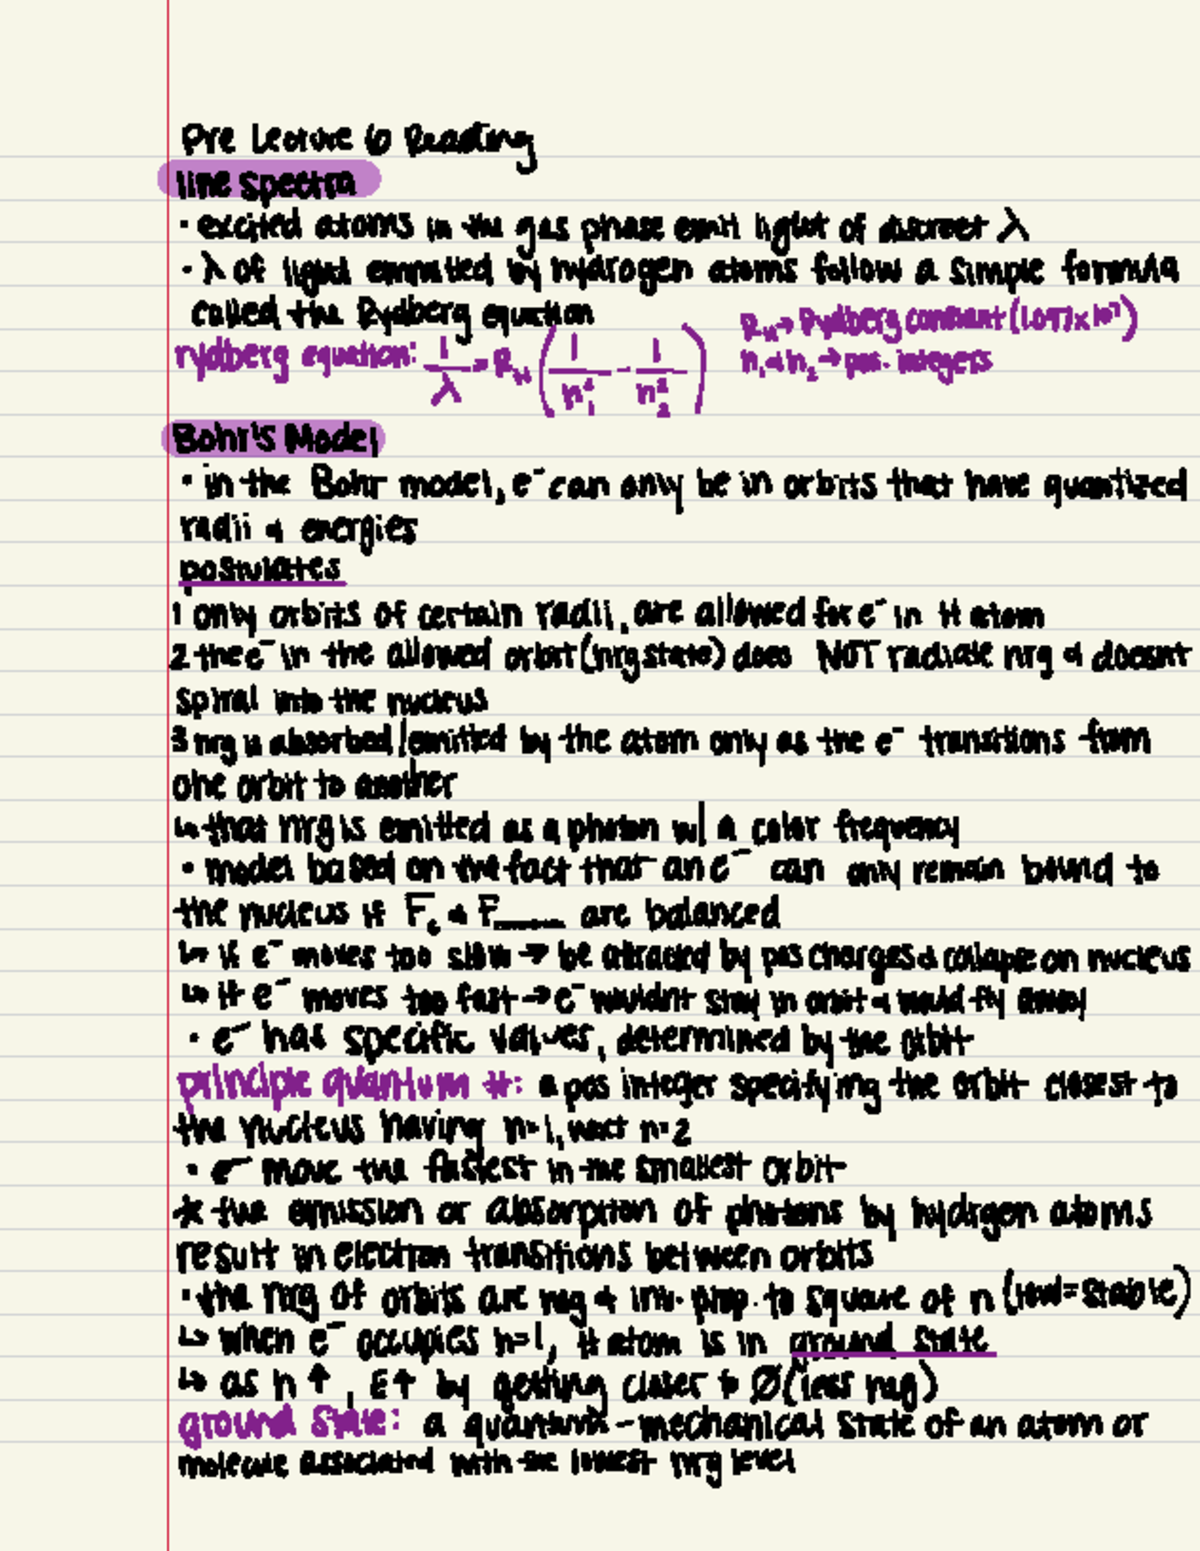 Pre Lecture 6 Reading
line spectra
• excited atoms in the gas phase emit light of discreet λ
• λ of light emmitted by hydrogen atoms follow a simple formula
called the Rydberg equation
rydberg equation: 1/λ = R_H (1/n₁² - 1/n₂²)
R_H → Rydberg constant (1.097 x 10⁷)
n₁ & n₂ → pos. integers
Bohr's Model
• in the Bohr model, e⁻ can only be in orbits that have quantized
radii & energies
postulates
1 only orbits of certain radii, are allowed for e⁻ in H atom
2 the e⁻ in the allowed orbit (nrg state) does NOT radiate nrg & doesnt
spiral into the nucleus
3 nrg is absorbed/emitted by the atom only as the e⁻ transitions from
one orbit to another
↳ that nrg is emitted as a photon w/ a color frequency
• model based on the fact that an e⁻ can only remain bound to
the nucleus if F_c & F____ are balanced
↳ if e⁻ moves too slow → be attracted by pos charges & collapse on nucleus
↳ if e⁻ moves too fast → e⁻ wouldnt stay in orbit & would fly away
• e⁻ has specific values, determined by the orbit
principle quantum #: a pos integer specifying the orbit closest to
the nucleus having n=1, next n=2
• e⁻ move the fastest in the smallest orbit
* the emission or absorption of photons by hydrgen atoms
result in electron transitions between orbits
• the nrg of orbits are neg & inv. prop. to square of n (low=stable)
↳ when e⁻ occupies n=1, H atom is in ground state
↳ as n ↑, E↑ by getting closer to Ø (less neg)
ground state: a quantum-mechanical state of an atom or
molecule associated with the lowest nrg level